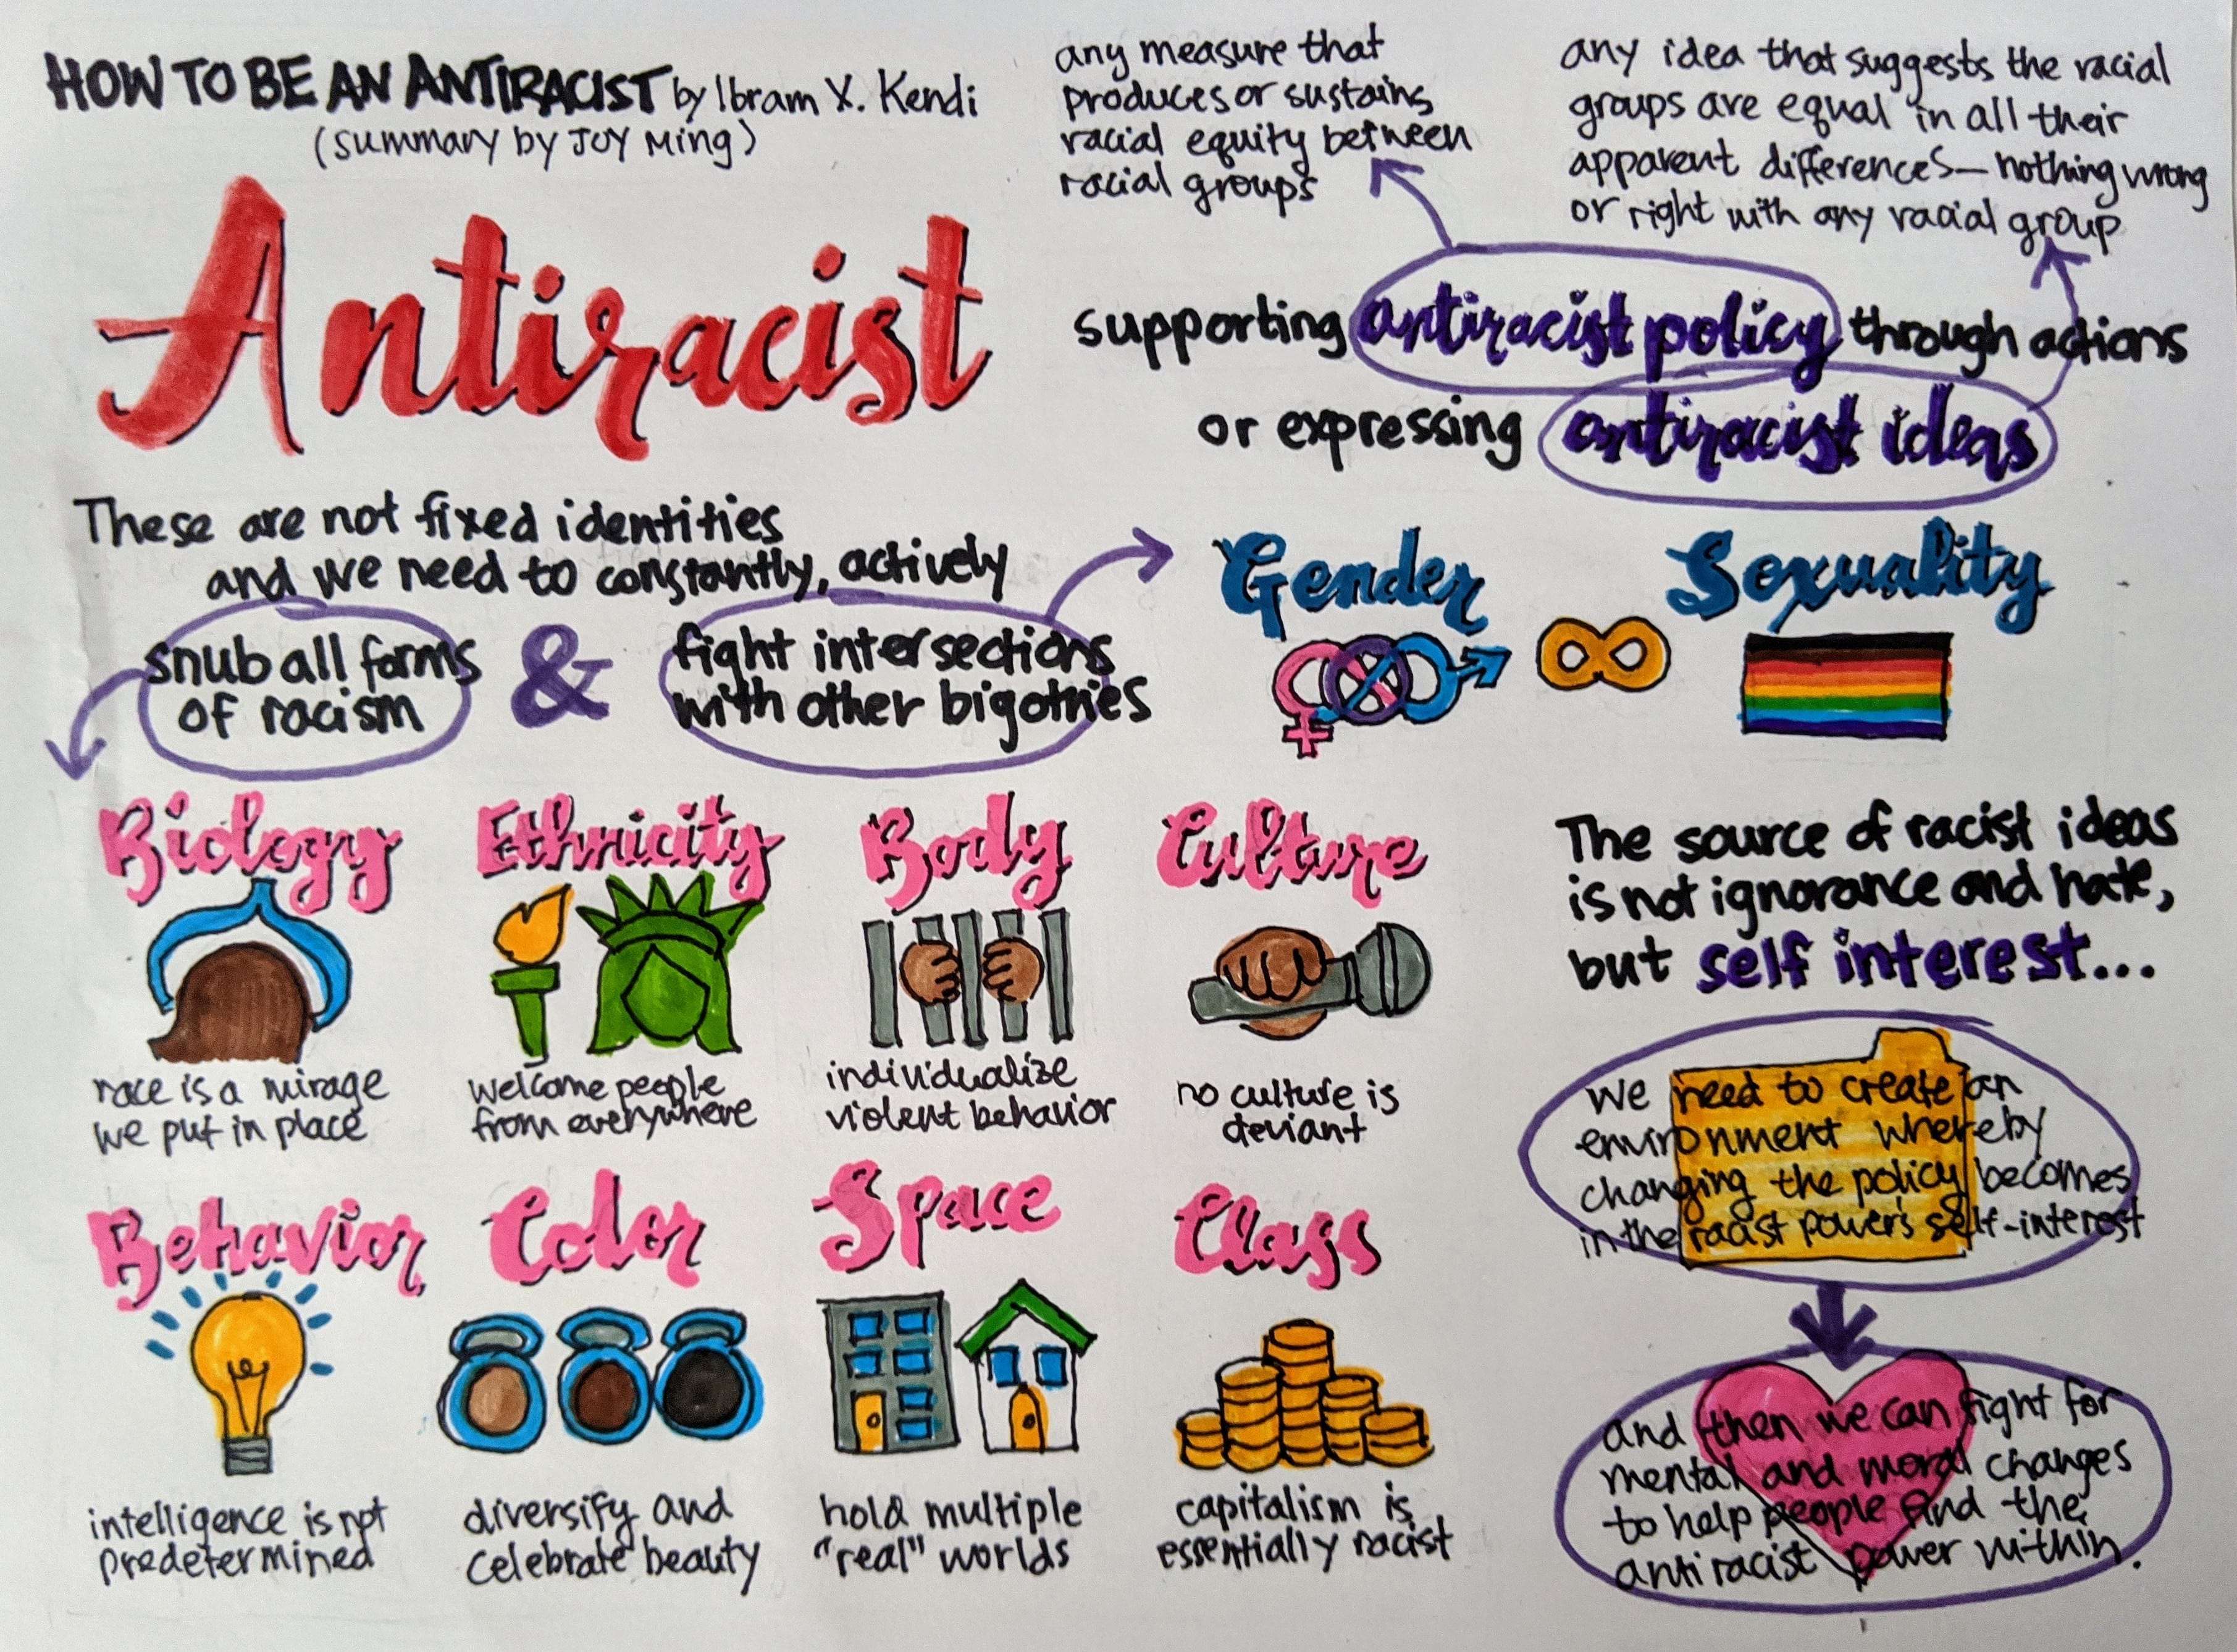 HOW TO BE AN ANTIRACIST by Ibram X. Kendi
(summary by JOY Ming)
Antiracist
any measure that
produces or sustains
racial equity between
racial groups
any idea that suggests the racial
groups are equal in all their
apparent differences—nothing wrong
or right with any racial group
supporting antiracist policy through actions
or expressing antiracist ideas
These are not fixed identities
and we need to constantly, actively
snub all forms
of racism
&
fight intersections
with other bigotries
Gender
Sexuality
Biology
race is a mirage
we put in place
Ethnicity
welcome people
from everywhere
Body
individualize
violent behavior
Culture
no culture is
deviant
Behavior
intelligence is not
predetermined
Color
diversify and
celebrate beauty
Space
hold multiple
"real" worlds
Class
capitalism is
essentially racist
The source of racist ideas
is not ignorance and hate,
but self interest...
we need to create an
environment whereby
changing the policy becomes
in the racist power's self-interest
and then we can fight for
mental and moral changes
to help people find the
antiracist power within.